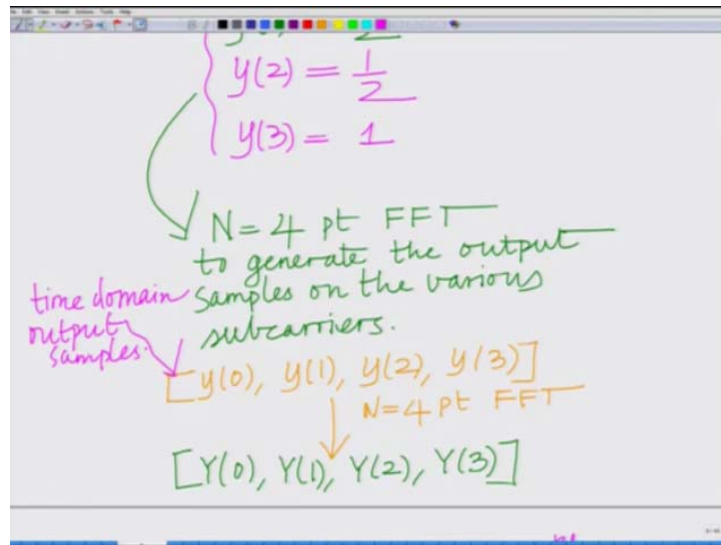 y(2) = 1/2
y(3) = 1
N=4 pt FFT
to generate the output
samples on the various
subcarriers.
time domain
output
samples.
[y(0), y(1), y(2), y(3)]
N=4 pt FFT
[Y(0), Y(1), Y(2), Y(3)]